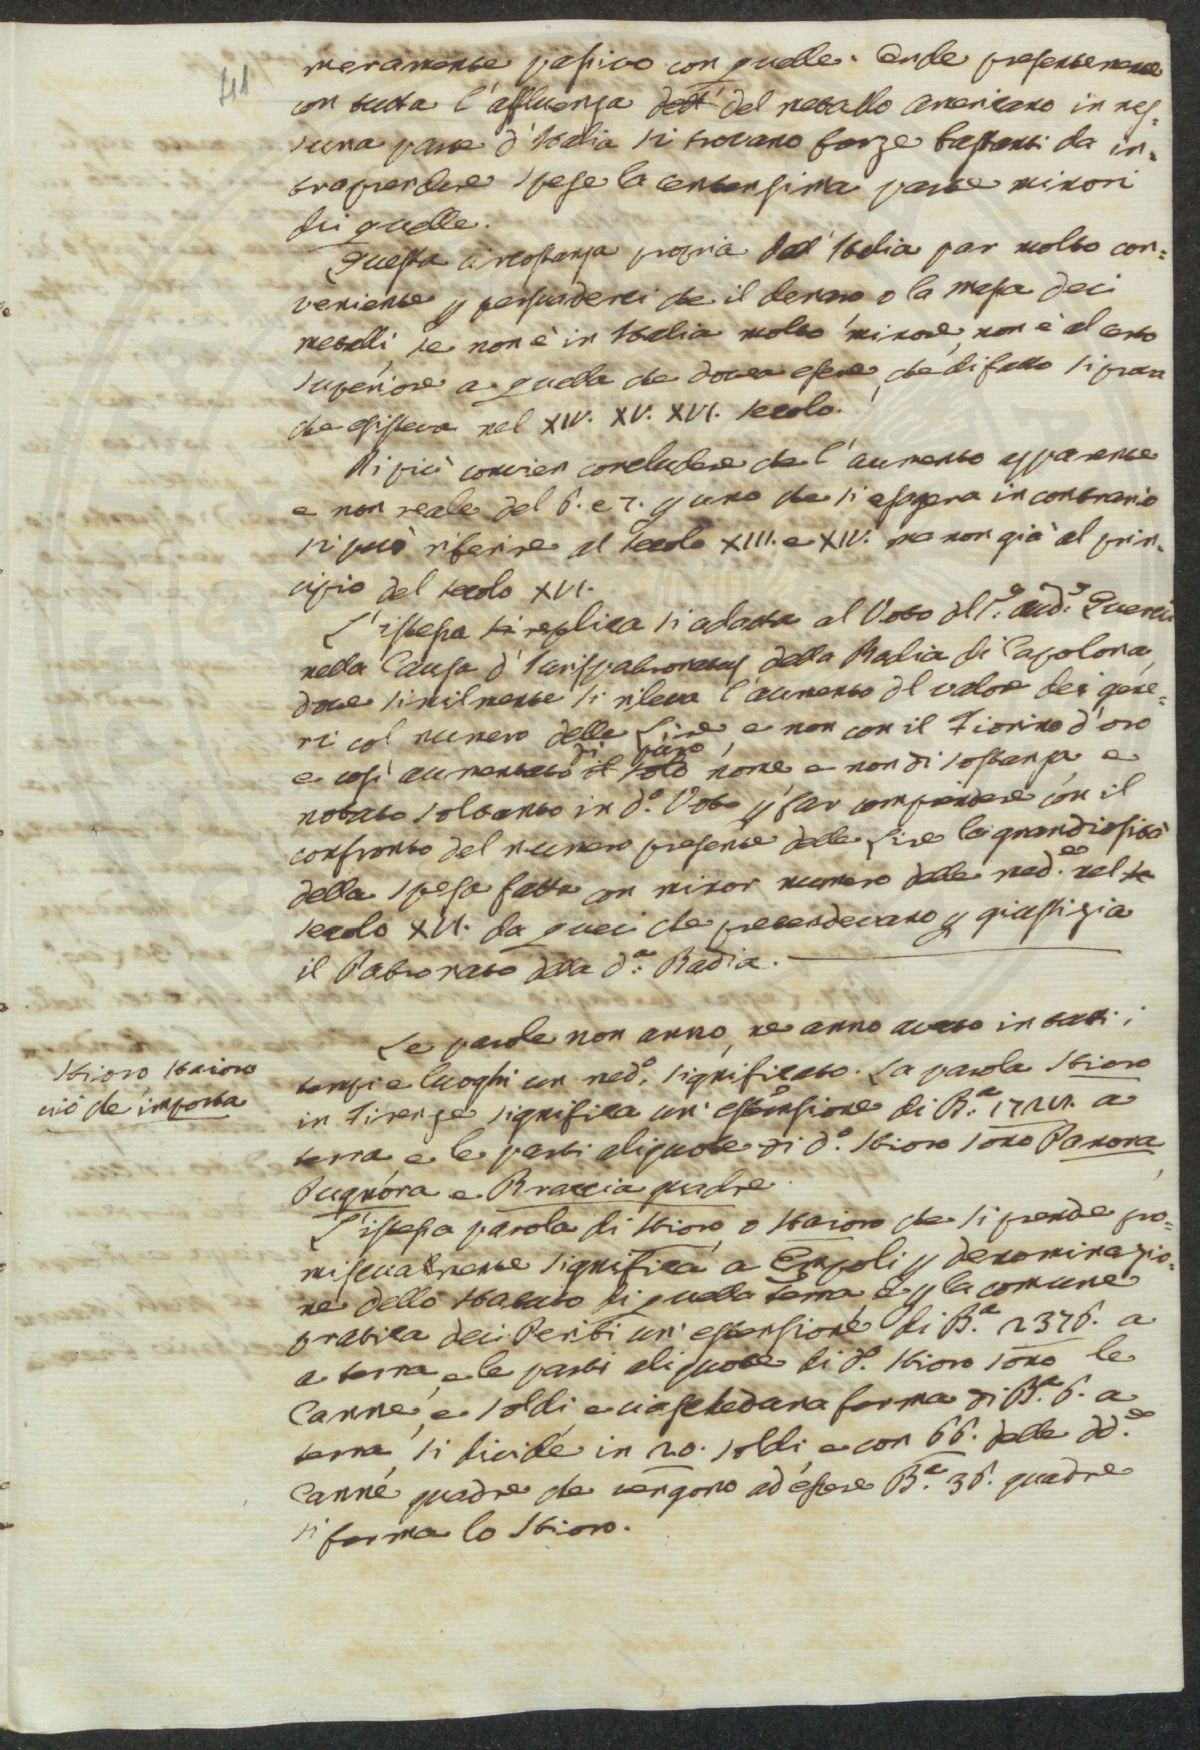 41
meramente passivo con quelle. Onde presentemente
con tutta l'affluenza dell' del metallo Americano in nes=
suna parte d'Italia si trovano forze bastanti da in=
traprendere spese la centesima parte minori
di quelle.
Questa circostanza propria dell'Italia par molto con=
veniente p persuaderci che il denaro o la massa dei
metalli, se non è in Italia molto minore, non è al certo
superiore a quella che dovea essere, che di fatto si prova
che esisteva nel XIV. XV. XVI. secolo.
Di più convien concludere che l'aumento apparente
e non reale del 6. e 7. p uno che si esagera in contrario
si può riferire al secolo XIII. e XIV. ma non già al prin=
cipio del secolo XVI.
L'istessa si replica si adatta al Voto del Sr. Aud.e Querci
nella Causa d'Iurispatronatus della Badia di Capolona,
dove similmente si rileva l'aumento dl valore dei gene=
ri col numero delle Lire e non con il Fiorino d'oro
di puro
e così aumentato il solo nome e non di sostanza e
notato soltanto in d.o Voto p far comprendere con il
confronto del numero presente delle Lire la grandiosità
della spesa fatta con minor numero delle med.e nel se
secolo XVI. da quei che pretendevano p giustizia
il Patronato della d.a Badia.
Le parole non anno, ne anno avuto in tutti i
tempi e luoghi un med.o significato. La parola Stioro
Stioro, Staioro
ciò che importa
in Firenze significa un'estensione di B.a 1721. a
terra, e le parti aliquote di d.o Stioro sono Panora
Pugnora e Braccia quadre.
L'istessa parola di Stioro, o Staioro che si prende pro=
miscuamente significa a Empoli p denominazio=
ne dello Statuto di quella Terra e p la comune
pratica dei Periti un'estensione di B.a 2376. a
a terra, e le parti aliquote di d.o Stioro sono le
Canne, e soldi e ciascheduna forma di B.a 6. a
terra, si divide in 20. soldi e con 66. delle dd.e
Canne quadre che vengono ad essere B.a 36. quadre
si forma lo Stioro.